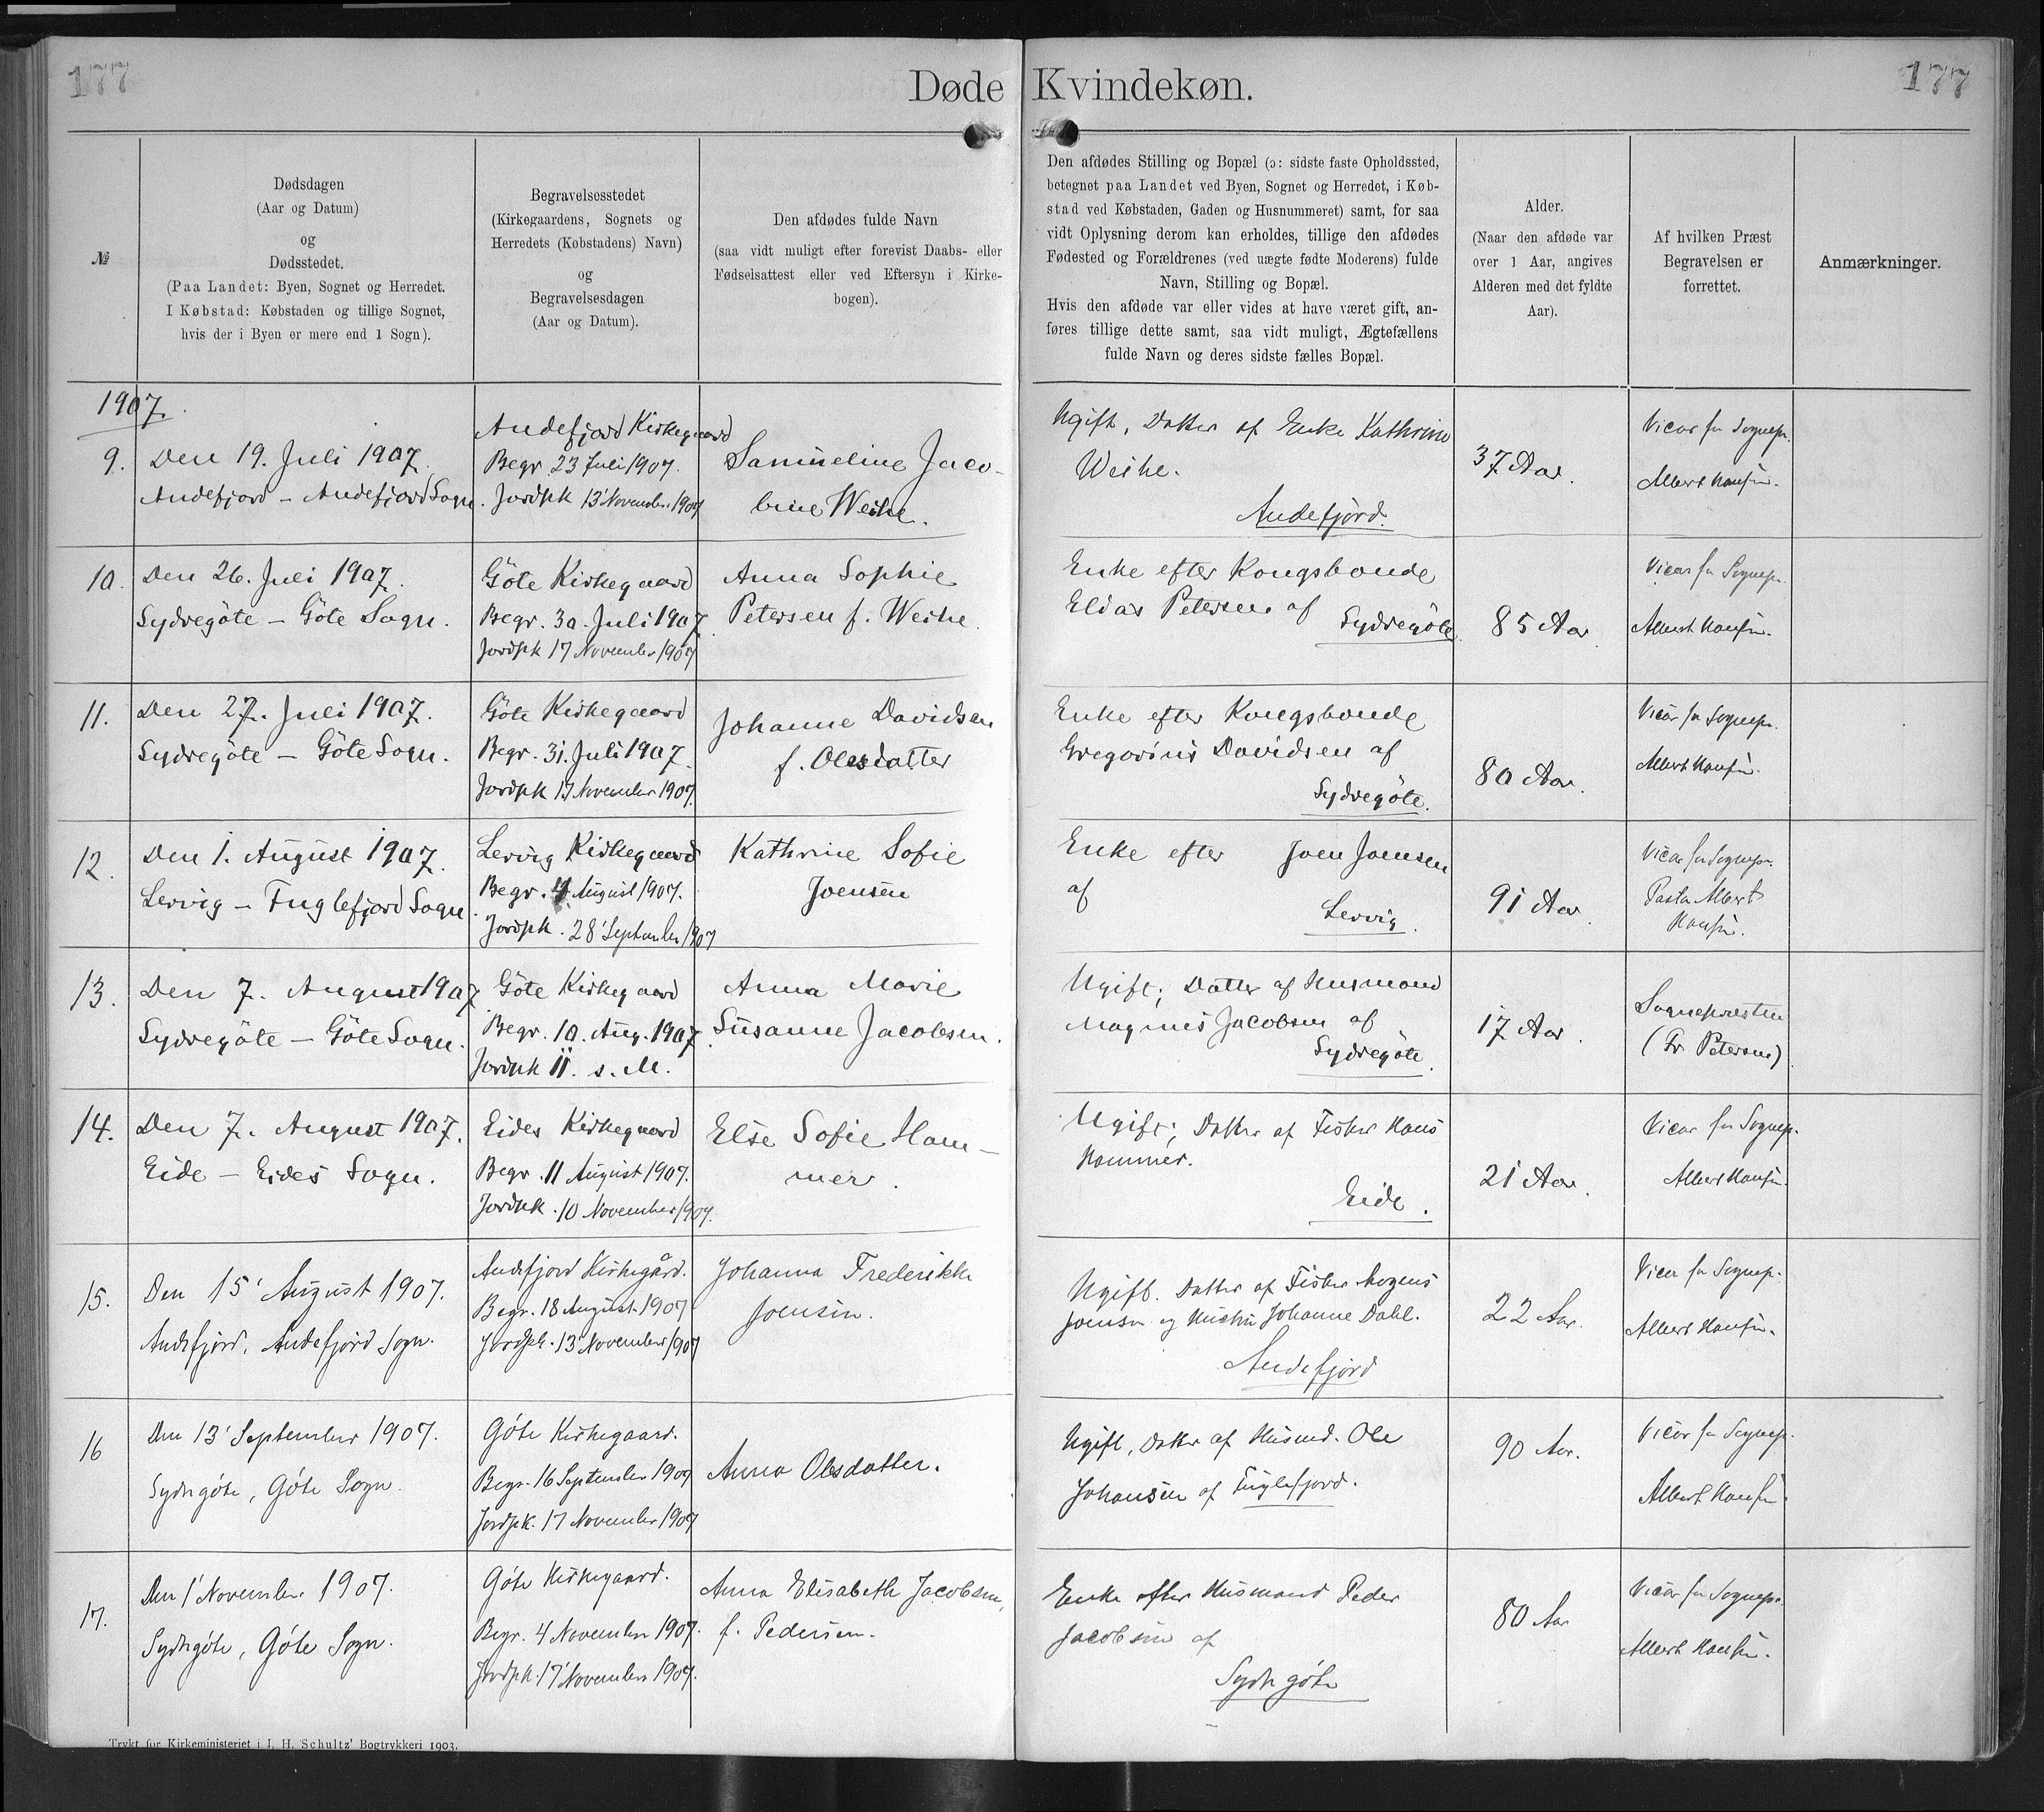 177
Døde Kvindekøn.
177
№
Dødsdagen
(Aar og Datum)
og
Dødsstedet.
(Paa Landet: Byen, Sognet og Herredet.
I Købstad: Købstaden og tillige Sognet,
hvis der i Byen er mere end 1 Sogn).
Begravelsesstedet
(Kirkegaardens, Sognets og
Herredets (Købstadens) Navn)
og
Begravelsesdagen
(Aar og Datum).
Den afdødes fulde Navn
(saa vidt muligt efter forevist Daabs- eller
Fødselsattest eller ved Eftersyn i Kirke-
bogen).
Den afdødes Stilling og Bopæl (ɔ: sidste faste Opholdssted,
betegnet paa Landet ved Byen, Sognet og Herredet, i Køb-
stad ved Købstaden, Gaden og Husnummeret) samt, for saa
vidt Oplysning derom kan erholdes, tillige den afdødes
Fødested og Forældrenes (ved uægte fødte Moderens) fulde
Navn, Stilling og Bopæl.
Hvis den afdøde var eller vides at have været gift, an-
føres tillige dette samt, saa vidt muligt, Ægtefællens
fulde Navn og deres sidste fælles Bopæl.
Alder.
(Naar den afdøde var
over 1 Aar, angives
Alderen med det fyldte
Aar).
Af hvilken Præst
Begravelsen er
forrettet.
Anmærkninger.
1907.
9.
Den 19. Juli 1907.
Andefjord – Andefjord Sogn
Andefjord Kirkegaard
Begr. 23 Juli 1907.
Jordpk 13' November 1907
Samueline Jaco-
bine Weihe.
Ugift, Datter af Enke Kathrine
Weihe.
Andefjord.
37 Aar.
Vicar for Sognepr.
Albert Hansen.
10.
Den 26. Juli 1907.
Sydregöte – Göte Sogn.
Göte Kirkegaard
Begr. 30. Juli 1907
Jordpk 17 November 1907
Anna Sophie
Petersen f. Weihe.
Enke efter Kongsbonde
Elias Petersen af
Sydregöte.
85 Aar.
Vicar for Sognepr.
Albert Hansen.
11.
Den 27. Juli 1907.
Sydregöte – Göte Sogn.
Göte Kirkegaard
Begr. 31. Juli 1907.
Jordpk 17 November 1907.
Johanne Davidsen
f. Olesdatter
Enke efter Kongsbonde
Gregorius Davidsen af
Sydregöte.
80 Aar.
Vicar for Sognepr.
Albert Hansen.
12.
Den 1. August 1907.
Lervig – Fuglefjord Sogn
Lervig Kirkegaard
Begr. 4 August 1907.
Jordpk. 28' September 1907
Kathrine Sofie
Joensen
Enke efter Joen Joensen
af
Lervig.
91 Aar
Vicar for Sognepr.
Pastor Albert
Hansen.
13.
Den 7. August 1907
Sydregöte – Göte Sogn.
Göte Kirkegaard
Begr. 10. Aug. 1907
Jordpk 11. s. M.
Anna Marie
Susanne Jacobsen.
Ugift; Datter af Husmand
Magnus Jacobsen af
Sydregöte.
17 Aar.
Sognepræsten
(Fr Petersen)
14.
Den 7. August 1907.
Eide – Eides Sogn.
Eides Kirkegaard
Begr. 11 August 1907.
Jordpk. 10 November 1907.
Else Sofie Ham-
mer.
Ugift; Datter af Fisker Hans
Hammer.
Eide.
21 Aar.
Vicar for Sognep.
Albert Hansen.
15.
Den 15' August 1907.
Andefjord, Andefjord Sogn.
Andefjord Kirkegård.
Begr. 18 August 1907
Jordpk. 13 November 1907
Johanna Frederikke
Joensen.
Ugift. Datter af Fisker Mogens
Joensen og Hustru Johanne Dahl.
Andefjord
22 Aar.
Vicar for Sognep.
Albert Hansen.
16
Den 13' September 1907.
Sydregöte, Göte Sogn.
Göte Kirkegaard.
Begr. 16 September 1907
Jordpk. 17 November 1907
Anna Olesdatter.
Ugift, Datter af Husmd. Ole
Johansen af Fuglefjord.
90 Aar.
Vicar for Sognep.
Albert Hansen.
17.
Den 1' November 1907.
Sydregöte, Göte Sogn.
Göte Kirkegaard.
Begr. 4 November 1907.
Jordpk. 17' November 1907.
Anna Elisabeth Jacobsen,
f. Pedersen.
Enke efter Husmand Peder
Jacobsen af
Sydregöte
80 Aar
Vicar for Sognepr.
Albert Hansen.
Trykt for Kirkeministeriet i J. H. Schultz' Bogtrykkeri 1903.